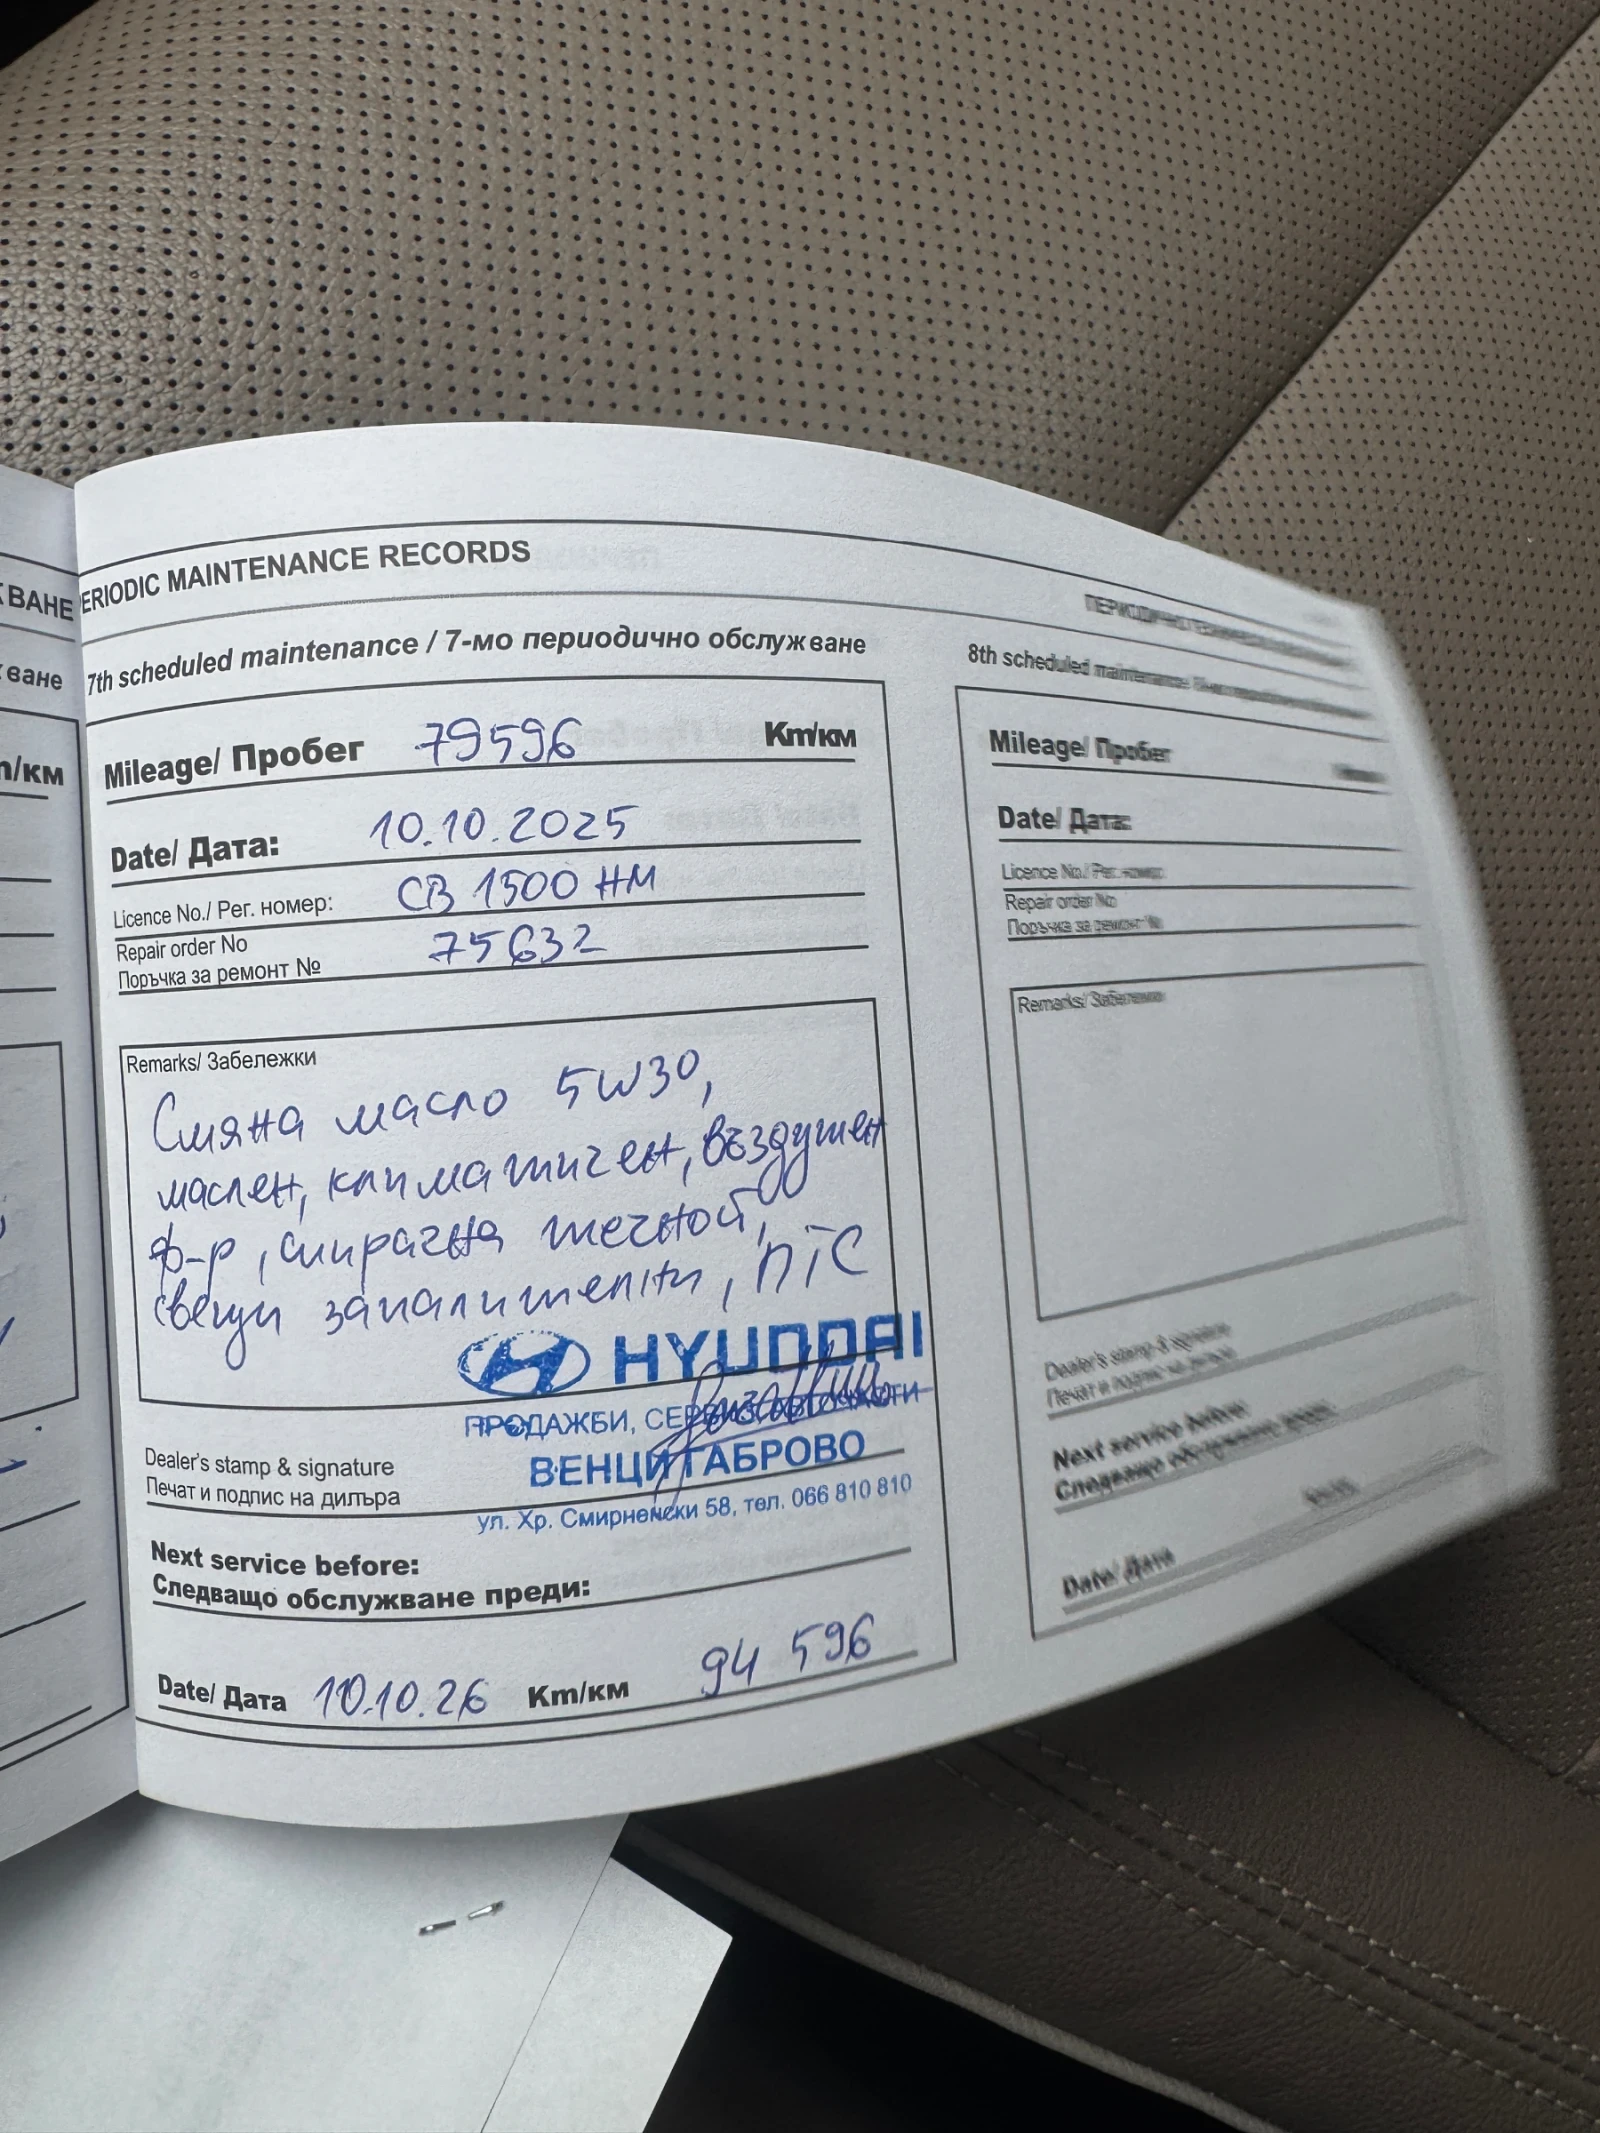 ВАНЕ
ване
/км
PERIODIC MAINTENANCE RECORDS
7th scheduled maintenance / 7-мо периодично обслужване
Mileage/ Пробег 79596 Km/км
Date/ Дата: 10.10.2025
Licence No./ Рег. номер: СВ 1500 НМ
Repair order No
Поръчка за ремонт № 75632
Remarks/ Забележки
Смяна масло 5W30,
маслен, климатичен, въздушен
ф-р, спирачна течност,
свещи запалителни, ПТС
HYUNDAI
ПРОДАЖБИ, СЕРВИЗ, АВТОЧАСТИ
ВЕНЦИ ГАБРОВО
ул. Хр. Смирненски 58, тел. 066 810 810
Dealer's stamp & signature
Печат и подпис на дилъра
Next service before:
Следващо обслужване преди:
Date/ Дата 10.10.26 Km/км 94 596
8th scheduled maintenance
Mileage/ Пробег
Date/ Дата:
Licence No./ Рег. номер:
Repair order No
Поръчка за ремонт №
Remarks/ Забележки
Dealer's stamp & signature
Печат и подпис на дилъра
Next service before:
Следващо обслужване преди:
Km/км
Date/ Дата